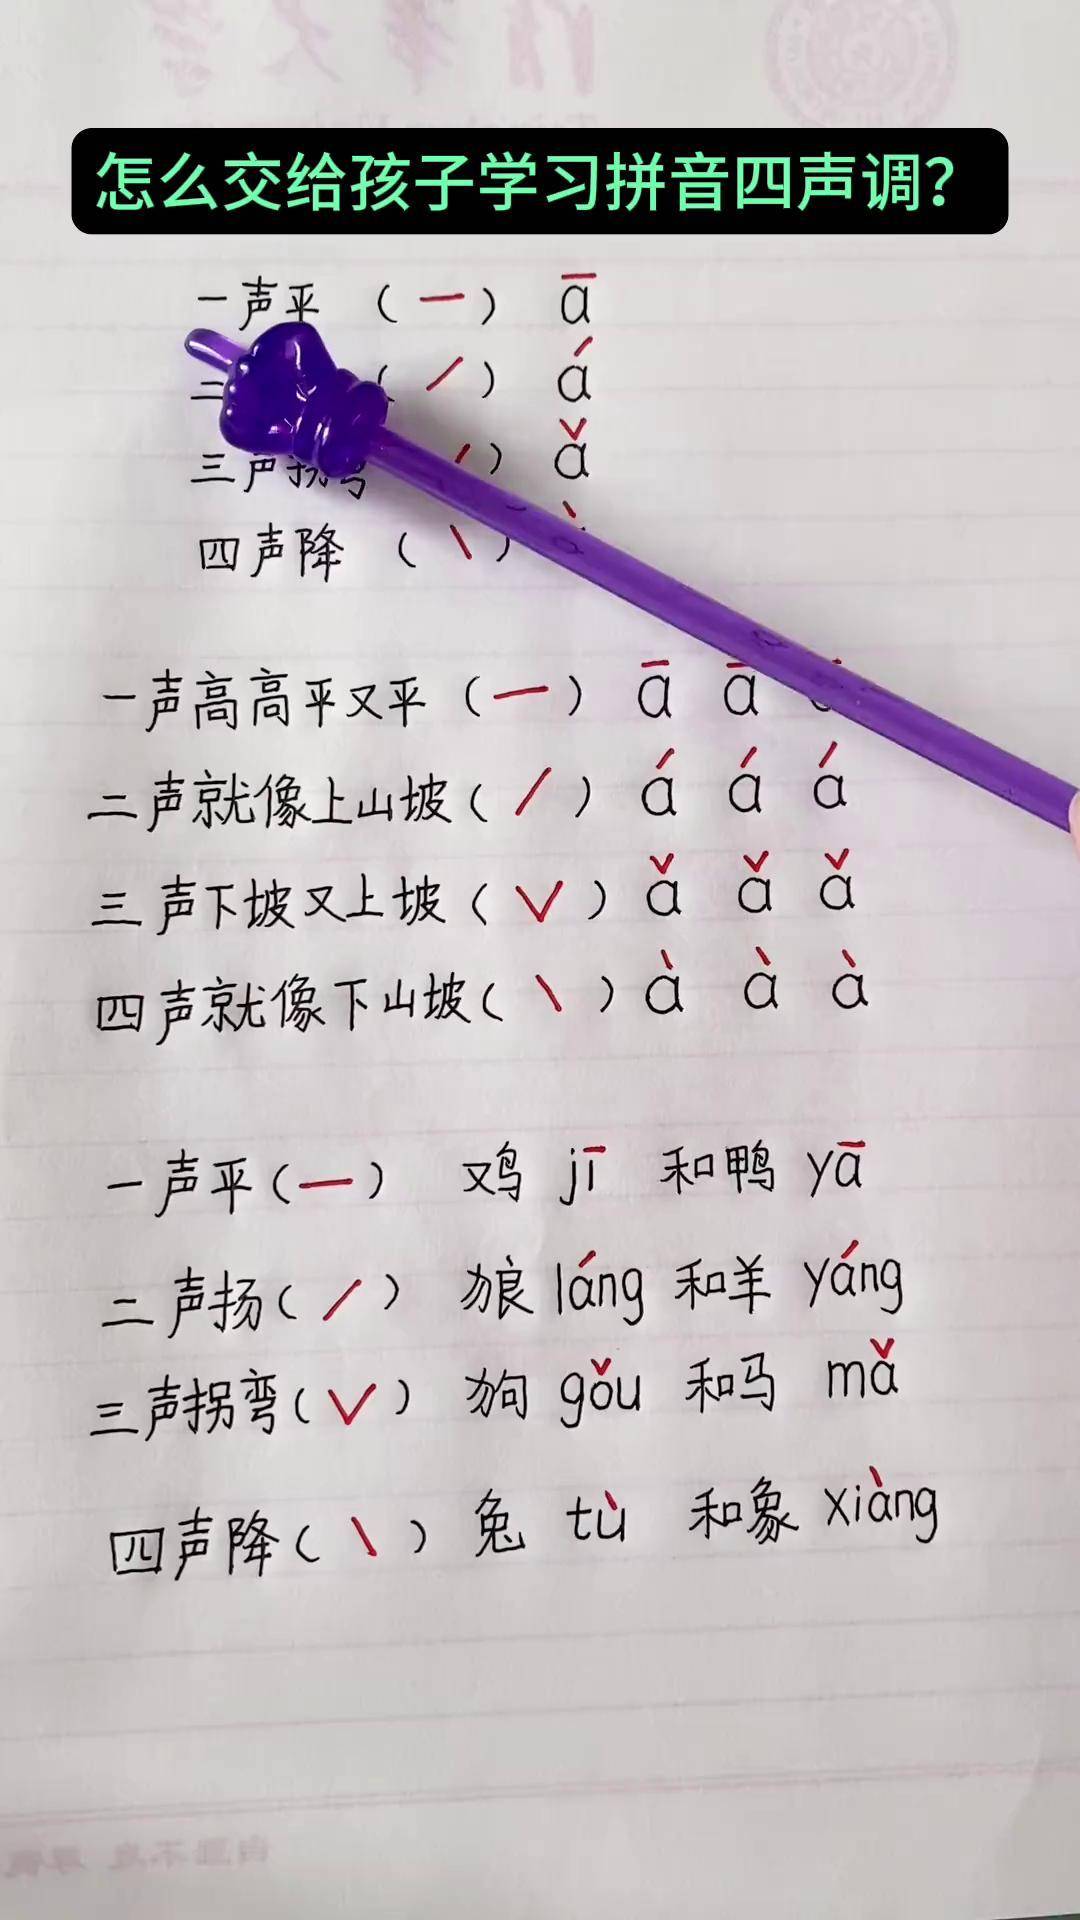 怎么交给孩子学习拼音四声调?
一声平 (一) ā
二 (ˊ) á
三声拐弯 ) ǎ
四声降 (ˋ)
一声高高平又平 (一) ā ā
二声就像上山坡 (ˊ) á á á
三声下坡又上坡 (ˇ) ǎ ǎ ǎ
四声就像下山坡 (ˋ) à à à
一声平 (一) 鸡 jī 和鸭 yā
二声扬 (ˊ) 狼 láng 和羊 yáng
三声拐弯 (ˇ) 狗 gǒu 和马 mǎ
四声降 (ˋ) 兔 tù 和象 xiàng